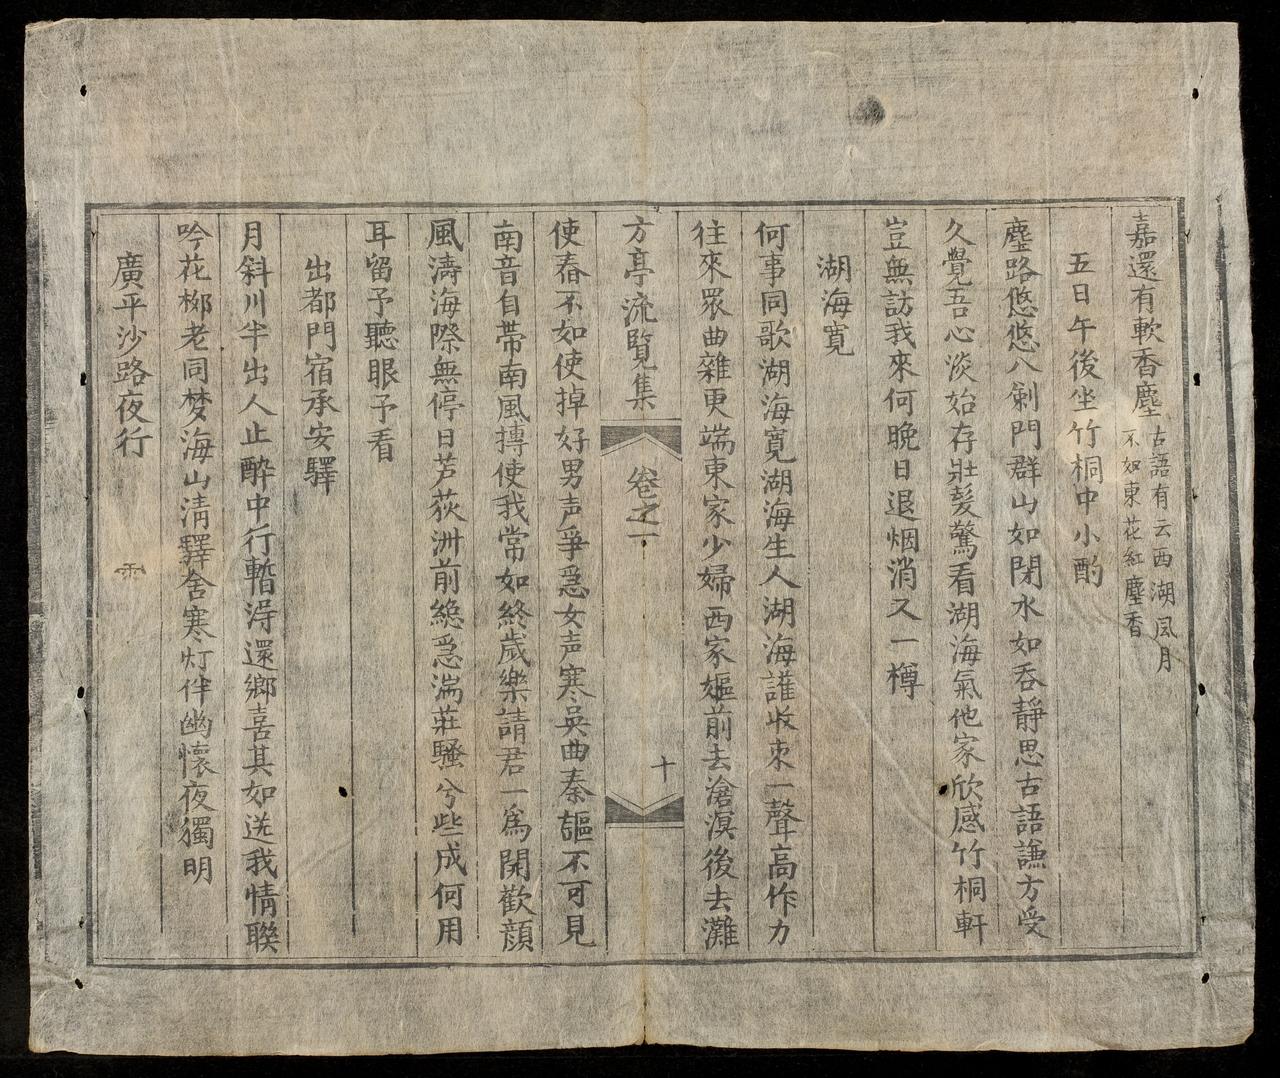 嘉還有軟香塵
古語有云西湖风月
不如東花紅塵香
五日午後坐竹桐中小酌
塵路悠悠八剣門群山如閉水如吞靜思古語謙方受
久覺吾心淡始存壯髮驚看湖海氣他家欣感竹桐軒
豈無訪我來何晚日退烟消又一樽
湖海寬
何事同歌湖海寬湖海生人湖海讙收来一聲高作力
往來眾曲雜更端東家少婦西家嫗前去滄溟後去灘
方亭流覽集
卷之一
十
使春不如使掉好男声爭爲女声寒吳曲秦謳不可見
南音自帶南風摶使我常如終歲樂請君一為開歡顔
風濤海際無停日芦荻洲前绝爲湍莊騷兮些成何用
耳留予聽眼予看
出都門宿承安驛
月斜川半出人止酔中行暫淂還鄉喜其如送我情聨
吟花柳老同梦海山清驛舍寒灯伴幽懷夜獨明
廣平沙路夜行